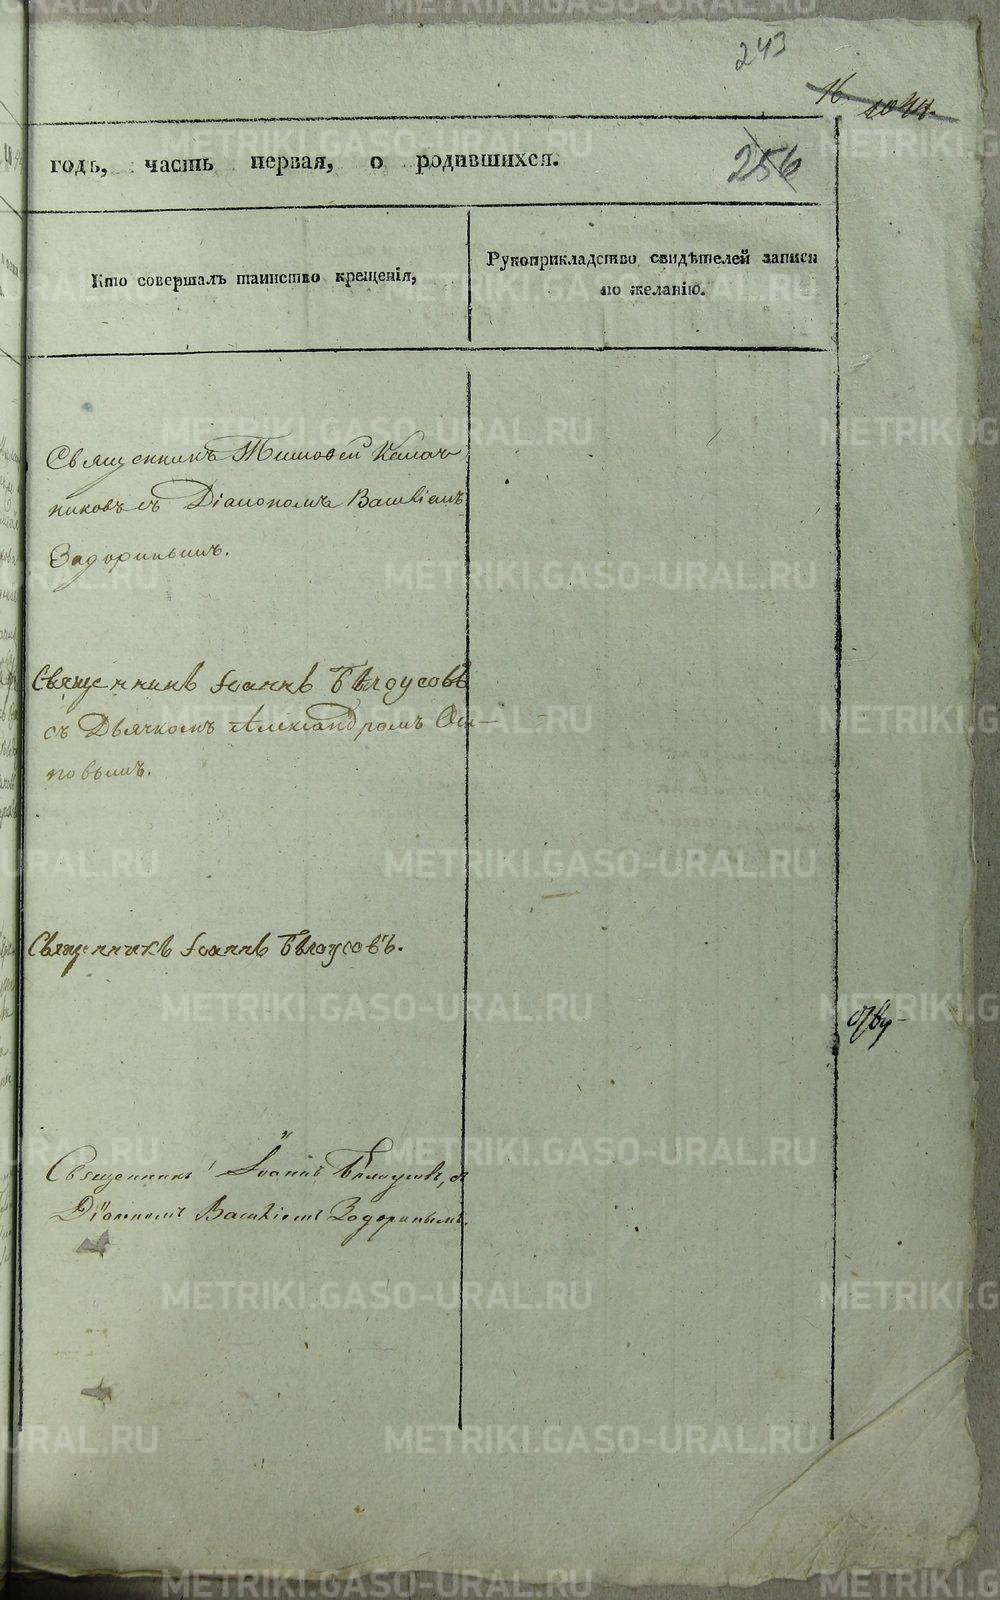 243
16
годъ, часть первая, о родившихся.
256
Кто совершалъ таинство крещенія,
Рукоприкладство свидѣтелей записи
по желанію.
Священникъ Тимофей Калач
никовъ съ Діакономъ Василіемъ
Задоринымъ.
Священникъ Іоаннъ Бѣлоусовъ
съ Дьячкомъ Александромъ Оси-
повымъ.
Священникъ Іоаннъ Бѣлоусовъ.
Священникъ Іоаннъ Бѣлоусовъ, съ
Діакономъ Василіемъ Задоринымъ.
METRIKI.GASO-URAL.RU